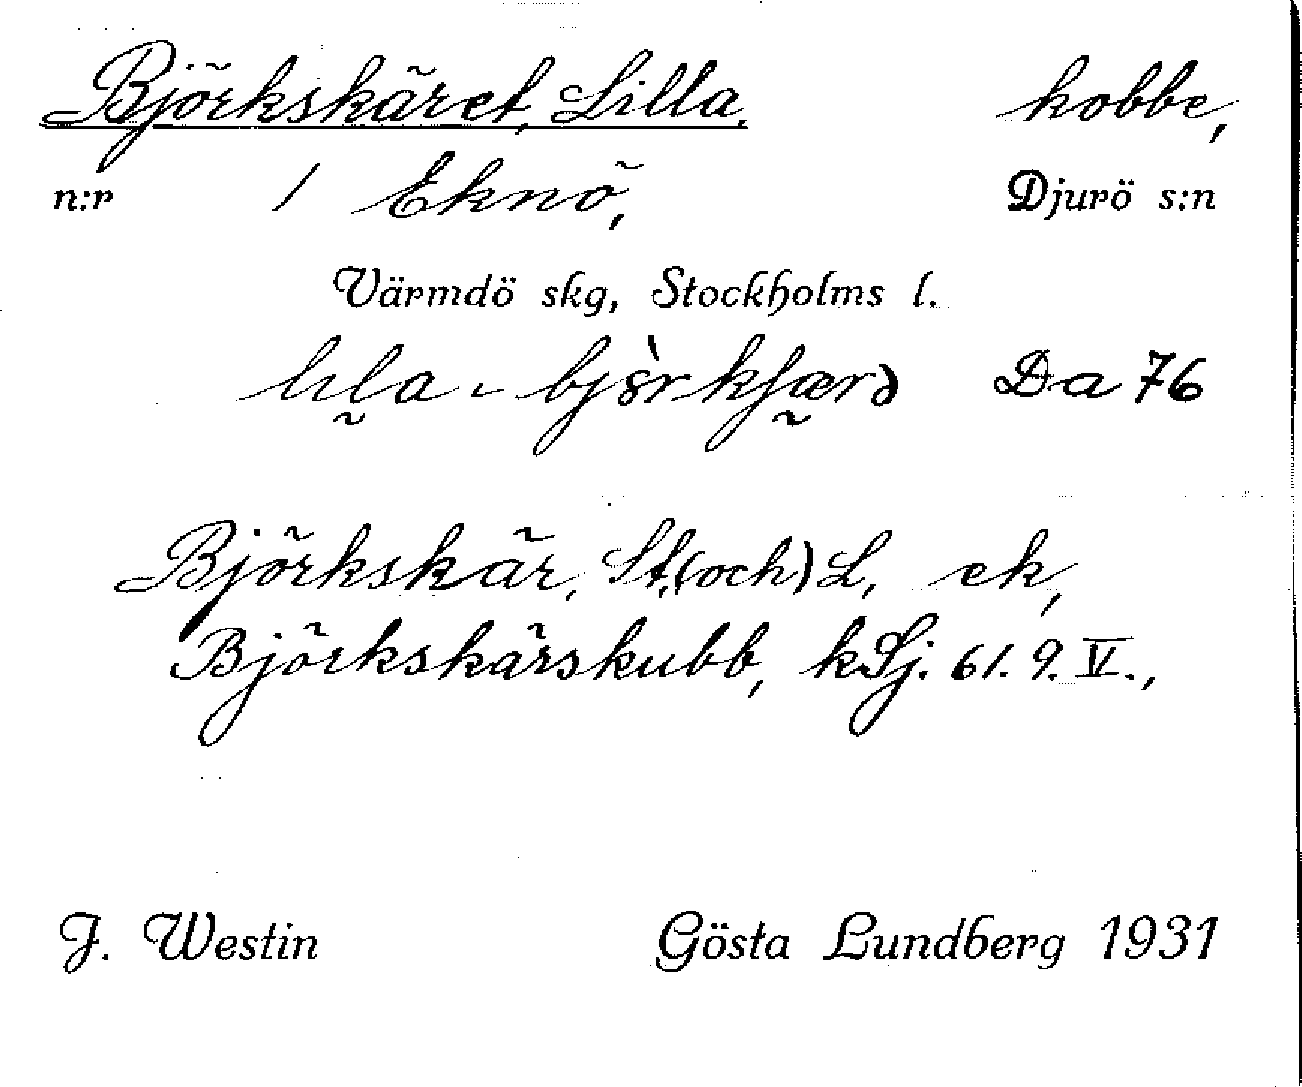 Björkskäret, Lilla, kobbe,
n:r 1 Eknö, Djurö s:n
Värmdö skg, Stockholms l.
Da 76
Björkskär, St. (och) L, ek,
Björkskärskubb, kSj. 61. 9. V.,
J. Westin Gösta Lundberg 1931